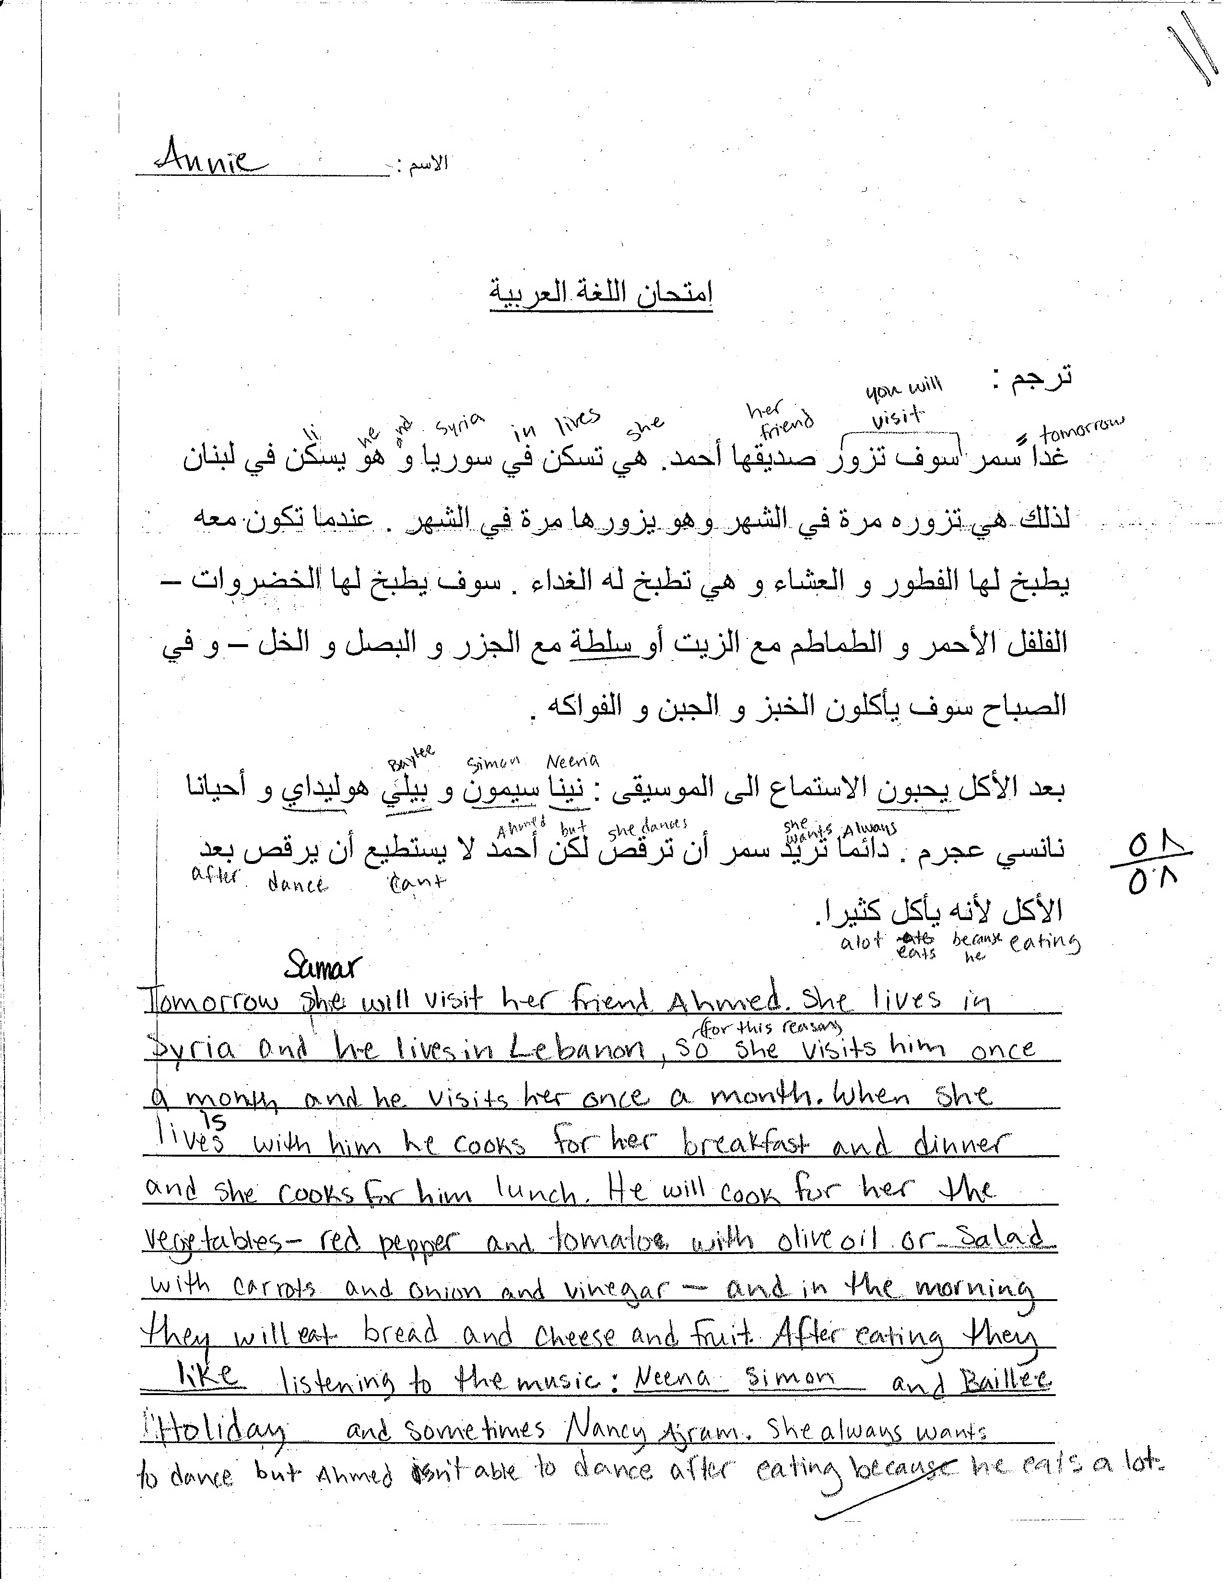 Annie الاسم :
امتحان اللغة العربية
ترجم :
you will visit
her friend
she
lives
in
Syria
and
he
li
= tomorrow
غداً سمر سوف تزور صديقها أحمد. هي تسكن في سوريا و هو يسكن في لبنان
لذلك هي تزوره مرة في الشهر و هو يزورها مرة في الشهر . عندما تكون معه
يطبخ لها الفطور و العشاء و هي تطبخ له الغداء . سوف يطبخ لها الخضروات –
الفلفل الأحمر و الطماطم مع الزيت أو سلطة مع الجزر و البصل و الخل – و في
الصباح سوف يأكلون الخبز و الجبن و الفواكه .
Baylee Simon Neena
بعد الأكل يحبون الاستماع الى الموسيقى : نينا سيمون و بيلي هوليداي و أحيانا
Ahmed but she dances she wants Always
نانسي عجرم . دائما تريد سمر أن ترقص لكن أحمد لا يستطيع أن يرقص بعد
after dance cant
٥٨
٥٨
الأكل لأنه يأكل كثيرا.
alot eats because he eating
Samar
Tomorrow she will visit her friend Ahmed. She lives in
(for this reason)
Syria and he lives in Lebanon, so she visits him once
a month and he visits her once a month. When she
is
lives with him he cooks for her breakfast and dinner
and she cooks for him lunch. He will cook for her the
vegetables – red pepper and tomatoe with olive oil or salad
with carrots and onion and vinegar – and in the morning
they will eat bread and cheese and fruit. After eating they
like listening to the music: Neena Simon and Baillee
Holiday and sometimes Nancy Ajram. She always wants
to dance but Ahmed isn't able to dance after eating because he eats a lot.